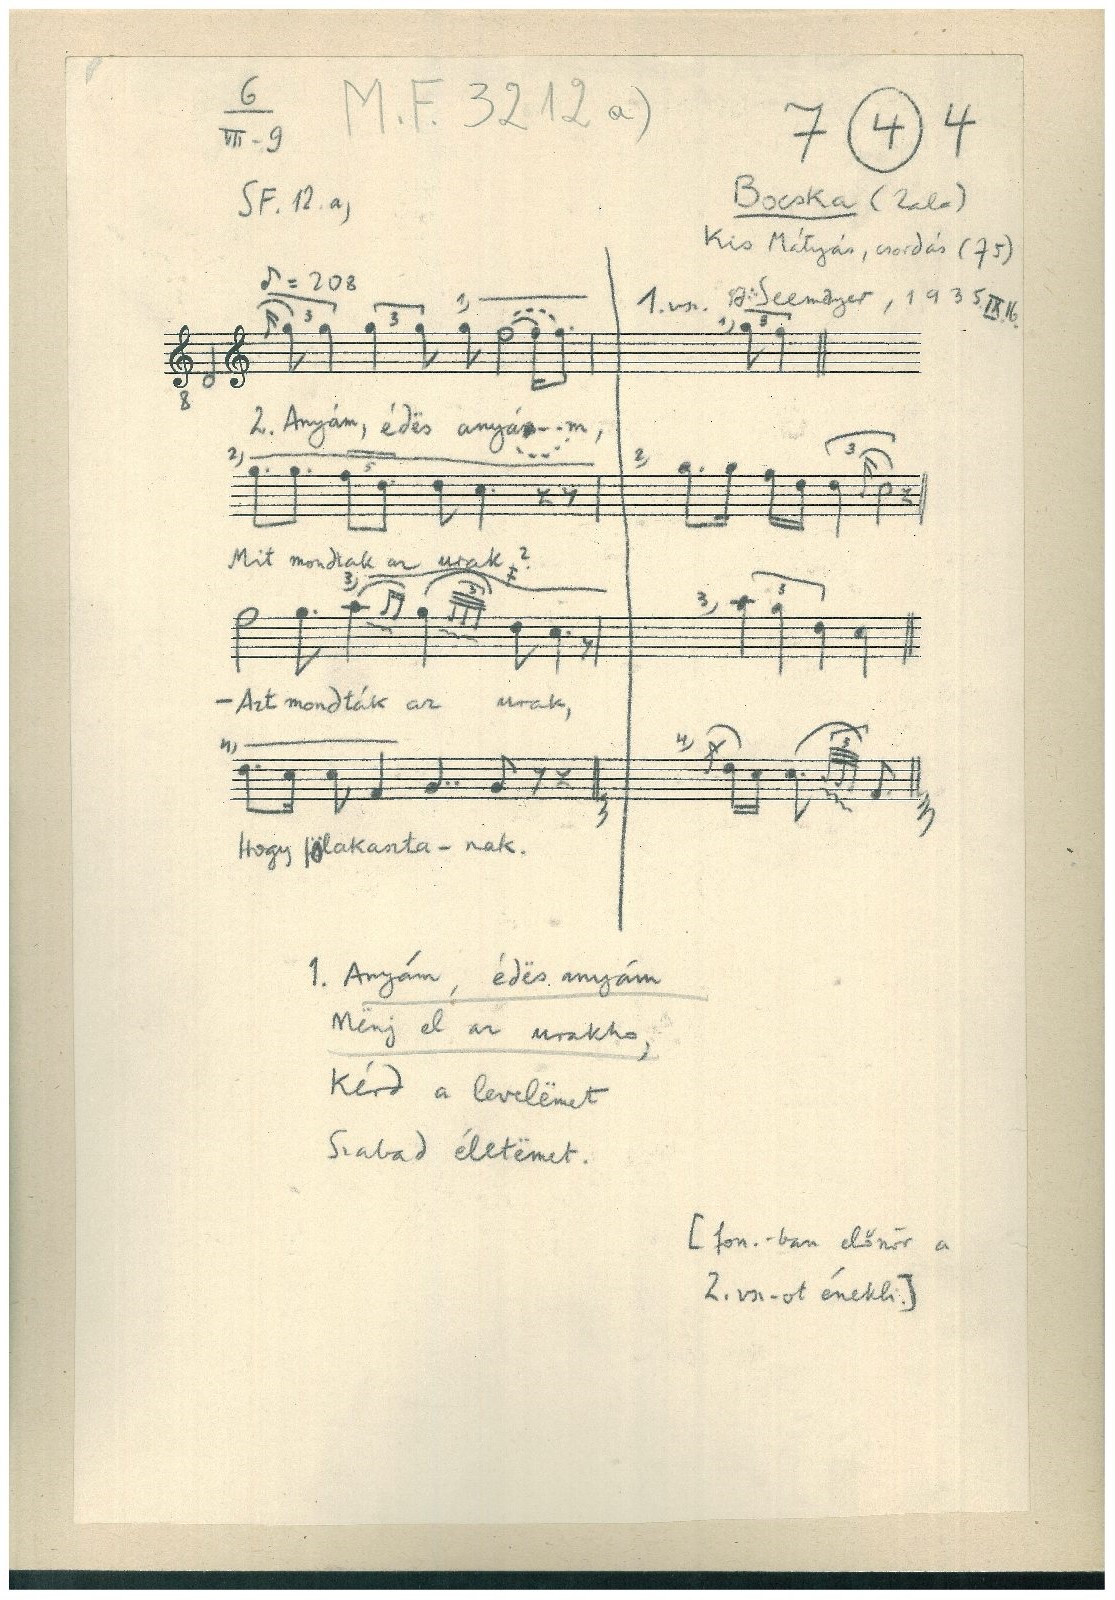 6
VII-9
M.F. 3212 a)
7 4 4
SF. 12.a,
Bocska (Zala)
Kis Mátyás, csordás (75)
♪ = 208
1. vsz. Seemayer, 1935. IX. 16.
1,
3 3
1, 3
8
2. Anyám, édës anyá---m,
2, 5
2, 3
Mit mondtak az urak?
3, 3
3, 3
-Azt mondták az urak,
4,
4, 3
Hogy fölakaszta-nak.
1. Anyám, édës anyám
Mënj el az urakho,
Kérd a levelëmet
Szabad életëmet.
[fon.-ban előszőr a
2. vsz-ot énekli.]